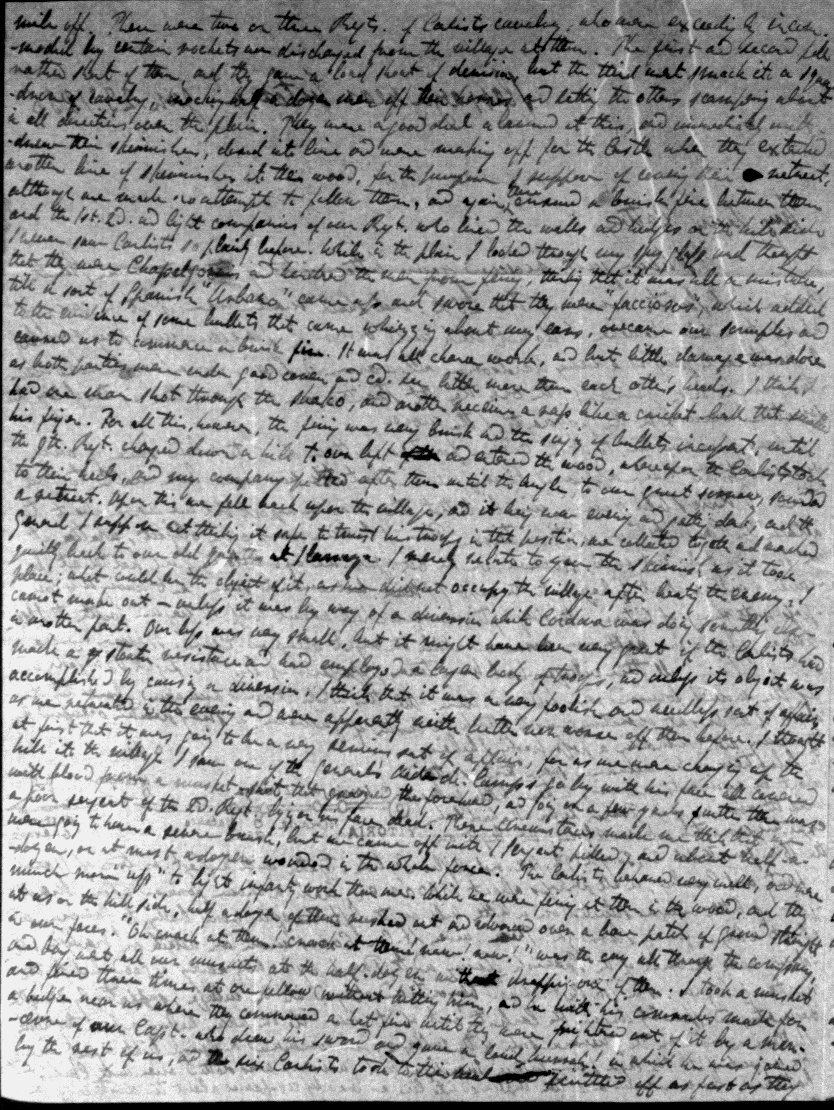 mile off. There were two or three Regts. of Carlists cavalry who were exceedingly incom-
-moded by certain rockets we discharged from the village at them. The first and second fell
rather short of them, and they gave a loud shout of derision, but the third went smack into a squa-
-dron of cavalry, knocking half a dozen men off their horses and setting the others scampering about
in all directions over the plain. They were a good deal alarmed at this, and immediately with-
-drew their skirmishers, closed into line and were making off for the Castle when they extended
another line of skirmishers into the wood, for the purpose I suppose of covering their retreat,
although we made no attempt to follow them, and again ensued a brisk fire between them
and the 1st. Ld. and light companies of our Regt. who lined the walls and hedges on the hill side
I never saw Carlists so plainly before. While in the plain I looked through my spy glass and thought
that they were Chapelgorris and hindered the men from firing, thinking that it was all a mistake,
till a sort of Spanish came up and swore that they were "facciosos", which added
to the evidence of some bullets that came whizzing about my ears, overcame our scruples and
caused us to commence a brisk fire. It was all chance work, and but little damage was done
as both parties were under good cover and cd. see little more than each other's heads. I think I
had one man shot through the shako, and another received a rap like a cricket ball that
his . For all this, however the firing was very brisk and the singing of bullets incessant, until
the 9th. Regt. charged down a hill to our left and entered the wood, whereupon the Carlists took
to their heels, and my company after them until the bugle to our great sorrow, sounded
a retreat. Upon this we fell back upon the village, and it being now evening and getting dark, and the
General I suppose not thinking it safe to trust his troops in that position, we collected together and marched
quietly back to our old quarters at . I merely relate to you the skirmish as it took
place; what could be the object of it, as we did not occupy the village after beating the enemy, I
cannot make out - unless it was by way of a diversion while Cordova was doing something else
in another part. Our loss was very small, but it might have been very great if the Carlists had
made a greater resistance and had employed a larger body of troops, and unless its object was
accomplished by causing a diversion, I think that it was a very foolish and needless sort of affair,
as we retreated in the evening and were apparently neither better nor worse off than before. I thought
at first that it was going to be a very serious sort of affair, for as we were charging up the
hill into the village I saw one of the General's Aides de Camps go by with his face all covered
with blood from a musket shot that grazed the forehead, and going on a few yards further there was
a poor serjeant of the Regt. lying on his face dead. These circumstances made me think that we
were going to have a severe brush, but we came off with 1 Serjeant killed, and about half a
-dozen, or at most a dozen wounded in the whole force. The Carlists behaved very well, and were
much more "up" to light infantry work than we. While we were firing at them in the wood, and they
at us on the hill side, half a dozen of them rushed out and advanced over a bare patch of ground straight
in our faces. "Oh crack at them! crack at them! now! now!" was the cry all through the company,
and bang went all our muskets at the half-dozen without dropping one of them. I took a musket
and fired three times at one fellow without hitting him, and he with his comrades made for
a hedge near us where they commenced a hot fire until they were frightened out of it by a man-
-œuvre of our Capt. who drew his sword and gave a loud hurrah! in which he was joined
by the rest of us, and the six Carlists took to their heels sprinted off as fast as they